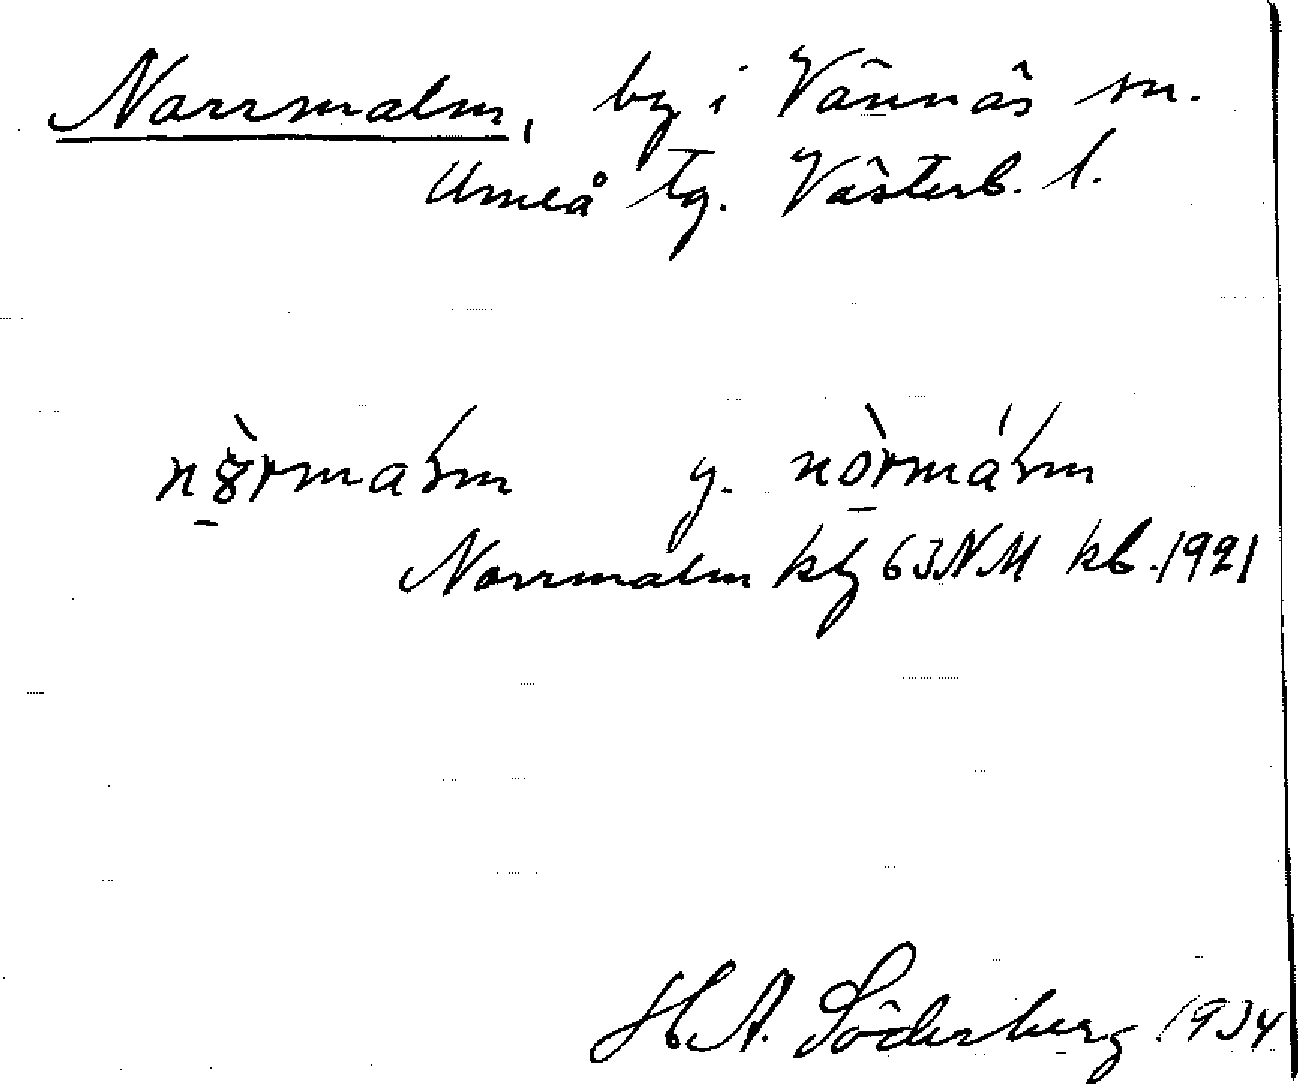 Norrmalm, by i Vännäs sn.
Umeå tg. Västerb. l.
y. nòrmálm
Norrmalm kbl 63NM kb. 1921
H.A. Söderberg 1934